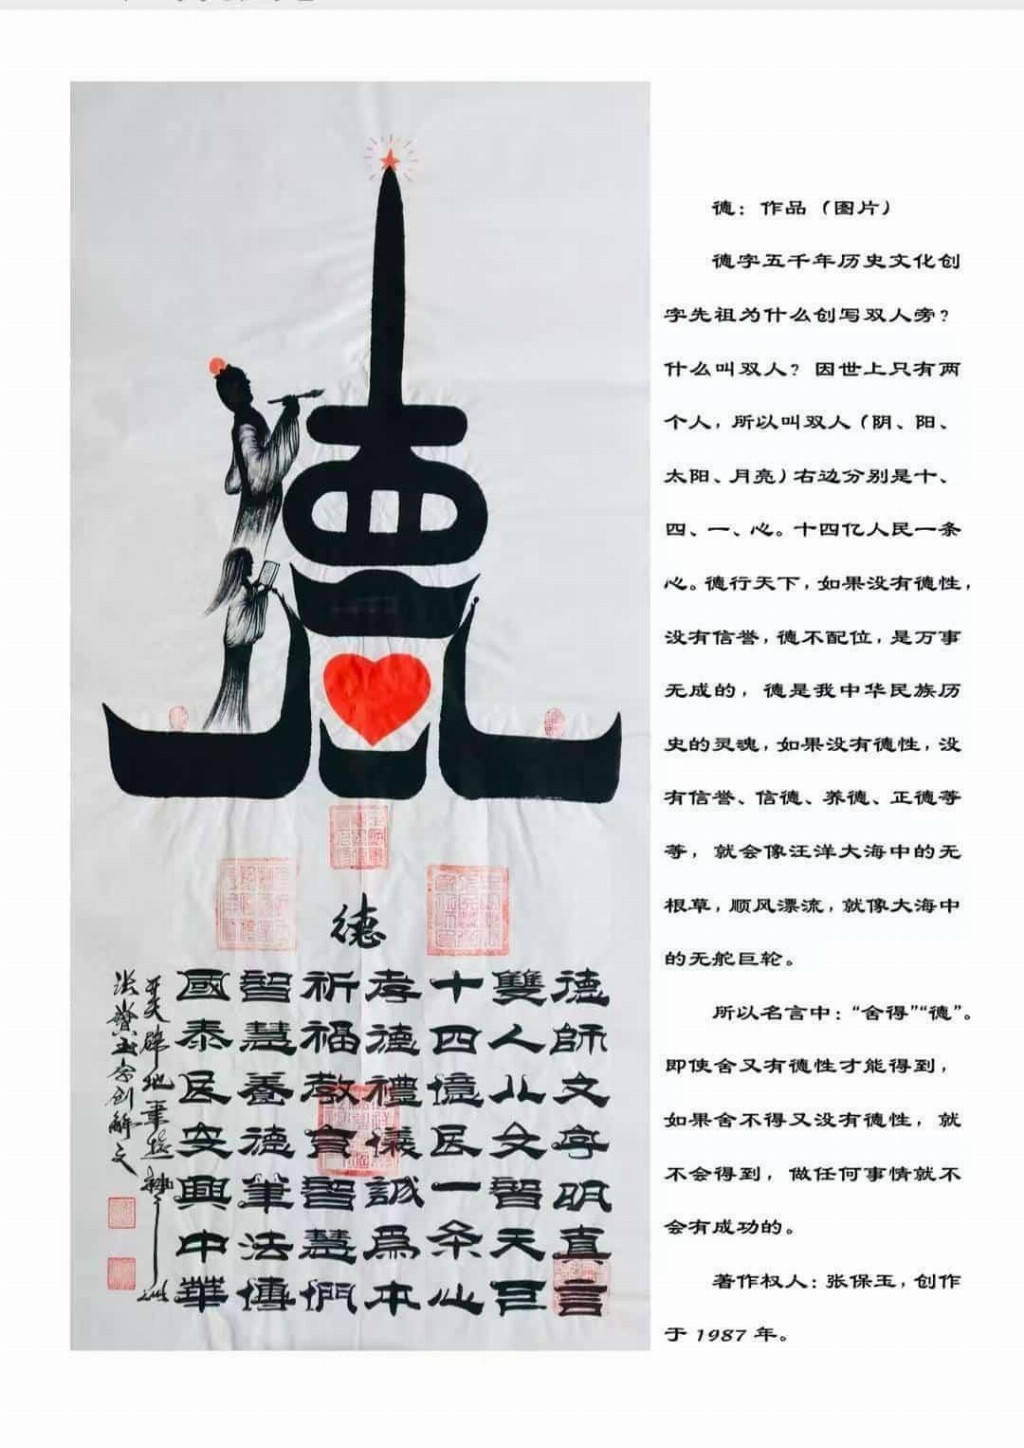 德：作品（图片）
德字五千年历史文化创
字先祖为什么创写双人旁？
什么叫双人？因世上只有两
个人，所以叫双人（阴、阳、
太阳、月亮）右边分别是十、
四、一、心。十四亿人民一条
心。德行天下，如果没有德性，
没有信誉，德不配位，是万事
无成的，德是我中华民族历
史的灵魂，如果没有德性，没
有信誉、信德、养德、正德等
等，就会像汪洋大海中的无
根草，顺风漂流，就像大海中
的无舵巨轮。
所以名言中：“舍得”“德”。
即使舍又有德性才能得到，
如果舍不得又没有德性，就
不会得到，做任何事情就不
会有成功的。
著作权人：张保玉，创作
于 1987 年。
德
德師文字明真言
雙人八文智天巨
十四億民一条心
孝德禮儀誠爲本
祈福教育智慧們
智慧養德筆法傳
國泰民安興中華